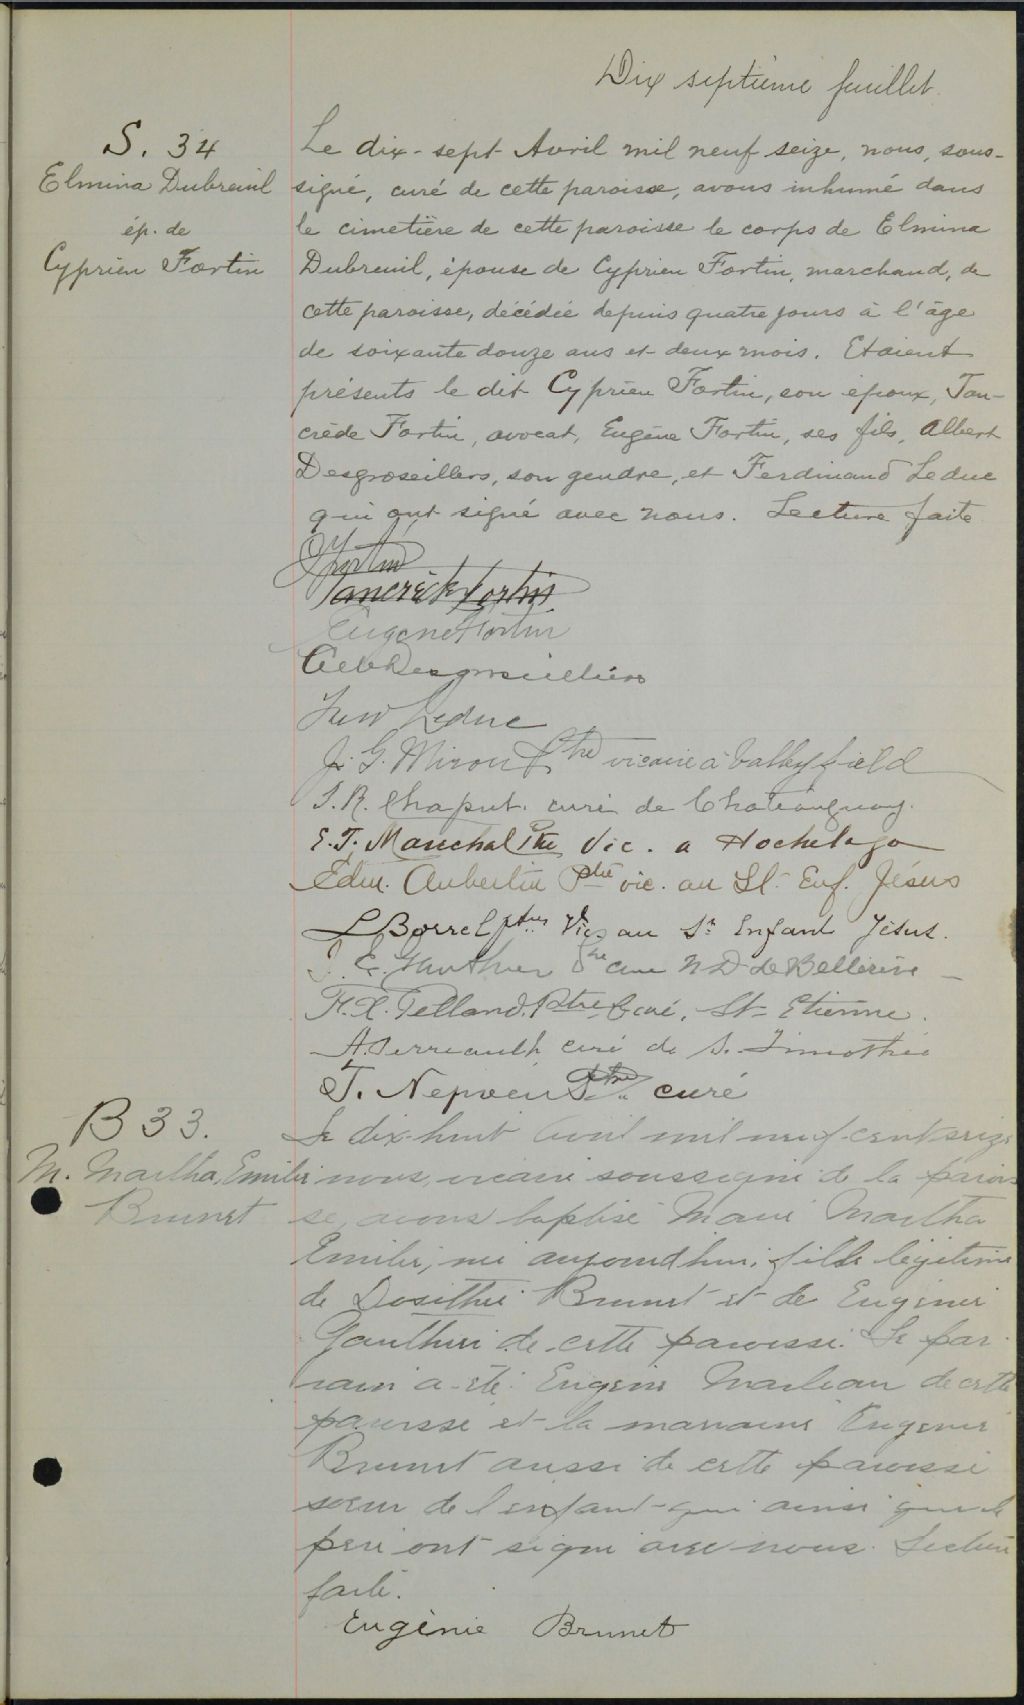 Dix septième feuillet.
S. 34
Elmina Dubreuil
ép. de
Cyprien Fortin
Le dix-sept Avril mil neuf seize, nous, sous-
signé, curé de cette paroisse, avons inhumé dans
le cimetière de cette paroisse le corps de Elmina
Dubreuil, épouse de Cyprien Fortin, marchand, de
cette paroisse, décédée depuis quatre jours à l'âge
de soixante douze ans et deux mois. Etaient
présents le dit Cyprien Fortin, son époux, Tan-
crède Fortin, avocat, Eugène Fortin, ses fils, Albert
Desgroseillers, son gendre, et Ferdinand Leduc
qui ont signé avec nous. Lecture faite
Fortin
Tancrède Fortin
Eugène Fortin
Desgroseilliers
Leduc
J. G. Miron Ptre vicaire à Valleyfield
J. R. Chaput. curé de Chateauguay.
E. J. Marechal Ptre Vic. a Hochelaga
Edm. Aubertin Ptre vic. au St. Enf. Jésus
L Borrel ptre Vic. au St Enfant Jésus.
Ptre cure N D de Bellerive
F. X. Pelland, Ptre Curé, St-Etienne.
A. Perreault curé de S. Timothée
J. Nepveu Ptre curé
B 33.
M. Martha, Emilie
Brunet
Le dix-huit Avril mil neuf-cent seize
nous, vicaire soussigné de la parois
se, avons baptisé Marie Martha
Emilie, née aujourd'hui, fille légitime
de Dosithée Brunet et de Eugénie
Gauthier de cette paroisse. Le par
rain a été Eugène Marleau de cette
paroisse et la marraine Eugénie
Brunet aussi de cette paroisse
soeur de l'enfant qui ainsi que le
père ont signé avec nous. Lecture
faite.
Eugénie Brunet